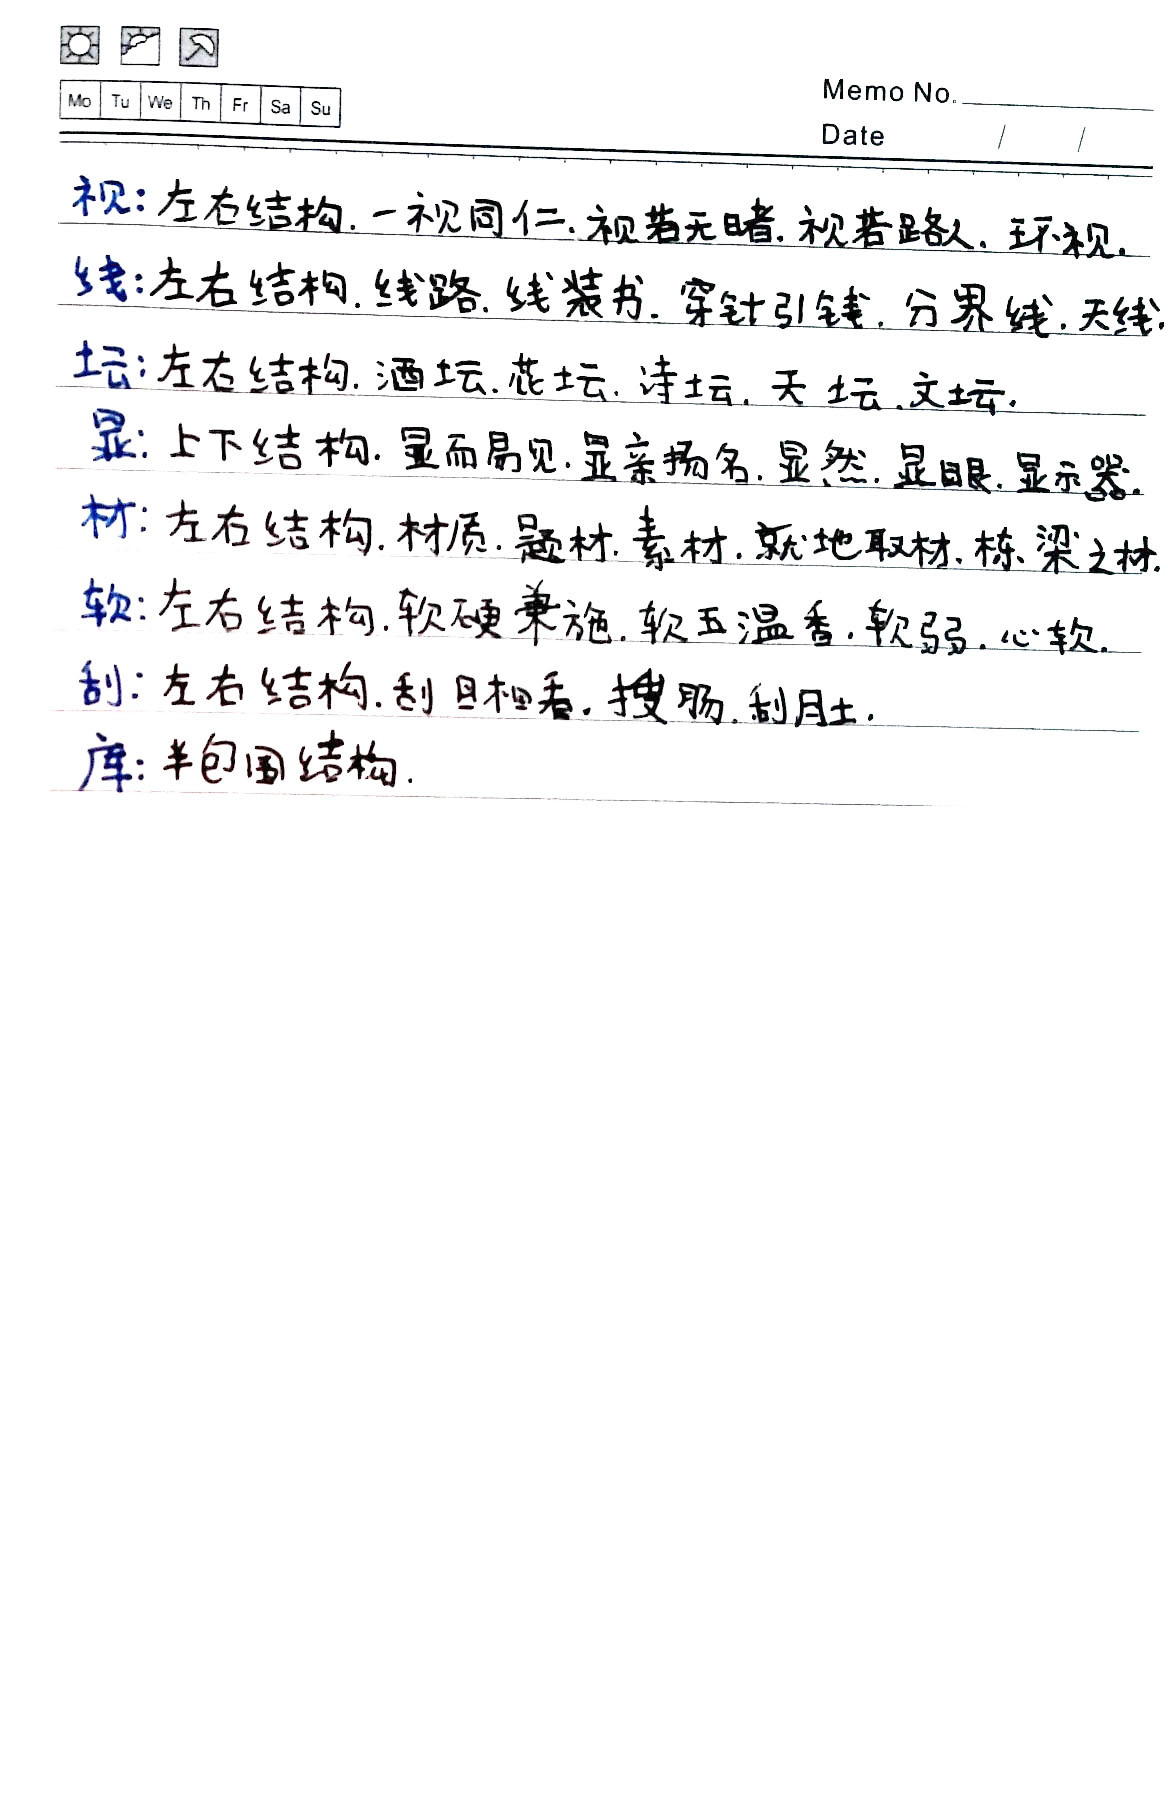 Mo Tu We Th Fr Sa Su
Memo No.
Date / /
视：左右结构．一视同仁．视若无睹．视若路人．环视．
线：左右结构．线路．线装书．穿针引线．分界线．天线．
坛：左右结构．酒坛．花坛．诗坛．天坛．文坛．
显：上下结构．显而易见．显亲扬名．显然．显眼．显示器．
材：左右结构．材质．题材．素材．就地取材．栋梁之材．
软：左右结构．软硬兼施．软五温香．软弱．心软．
刮：左右结构．刮目相看．搜肠刮肚．
库：半包围结构．